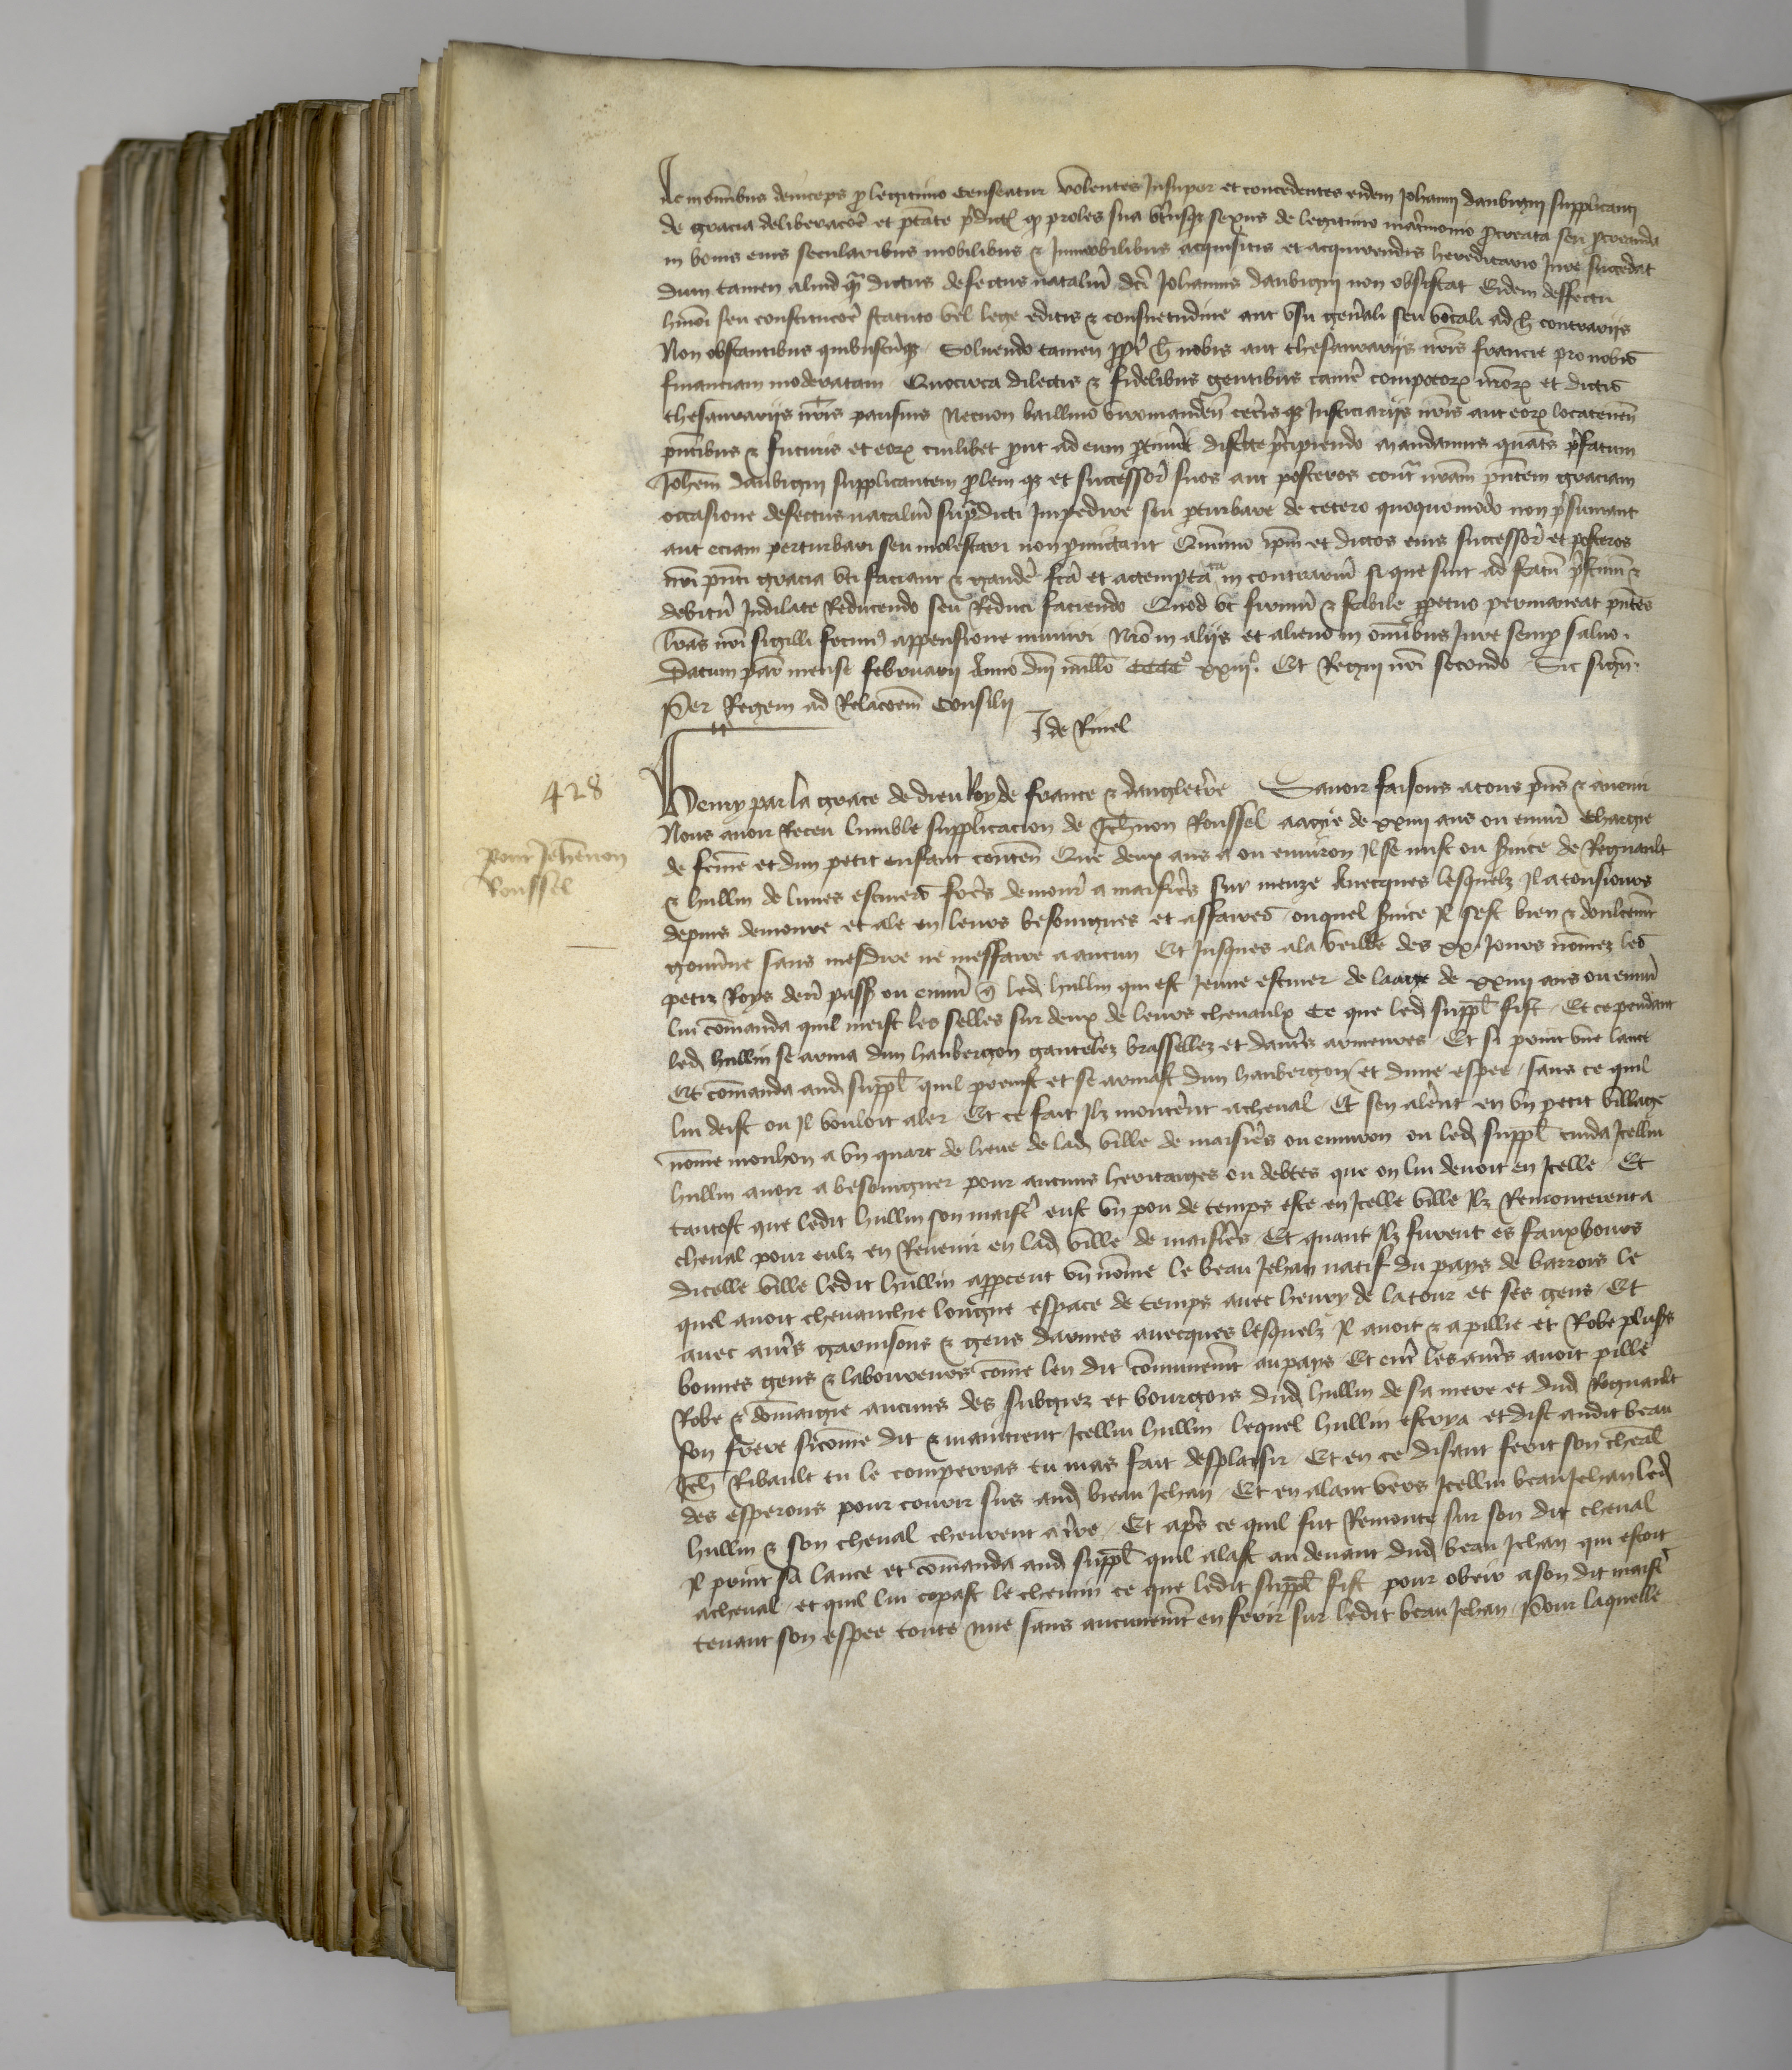 Ac in omnibus deinceps pro legitimo censeatur volentes Insuper et concedentes eidem Johanni daubigni supplicanti
de gracia deliberacōe et ptāte p̄dict̄ qz proles sua utriusqz sexus de legitimo mat̄rimonio procreata seu procreanda
in bonis eius secularibus mobilibus & Immobilibus acquisitis et acquirendis hereditario Jure succedat
dum tamen aliud quā dictus defectus nataliū dc̄i Johannis daubigni non obsistat Eidem deffectu
hmōi seu constitucōe statuto vel lege editis & consuetudine aut usu gen̄ali seu vocali ad h̄ contrariis
Non obstantibus quibuscūqz Soluendo tamen propt̄ h̄ nobis aut thesaurariis nr̄is francie pro nobis
financiam moderatam Quocirca dilectis & fidelibus gentibus camē compotorz nr̄orz et dictis
thesaurariis nr̄is parisius Necnon bailliuo viromanden̄ cet̄is qz Justiciariis nr̄is aut eorz locatenen̄
pn̄tibus & futuris et eorz cuilibet prout ad eum ptinuīt districte p̄cipiendo mandamus quatīs p̄fatum
Johem̄ daubigni supplicantem prolem qz et successor̄ suos aut posteros cont̄ nr̄am pn̄tem graciam
occasione defectus nataliū sup̄dicti Impedire seu perturbare de cetero quoquomodo non p̄sumant
aut eciam perturbari seu molestari non permittant Quinimo ip̄m et dictos eius successor̄ et posteros
nr̄i pn̄ti gracia uti faciant & gaudē fc̄a et actemptata in contrariū si que sint ad statū p̄stinū &
debitū Indilate Reducendo seu Reduci faciendo Quod ut firmū & stabile perpetuo permaneat pn̄tes
lr̄as nr̄i sigilli fecimꝰ appensione muniri Nr̄o in aliis et alieno in omībus Jure semp saluo.
Datum par̄ mense februarii Anno dn̄i millō CCCCº xxiiiº. Et Regni nr̄i secondo Sic sign̄.
Per Regem ad Relacōem Consilii
J de Rinel
428
Pour Jehēnon
Roussel
Henry par la grace de dieu Roy de france & dangletr̄e Sauoir faisons a tous pn̄s & auenir
Nous auoir Receu lumble supplicacion de Jehēnon Roussel aagie de xxiiii ans ou enuir̄ Chargie
de femē et dun petit enfant conten̄ Que deux ans a ou enuiron Il se mist ou s̄uice de Regnault
& hullin de lunes escuiers̄ fr̄es demour̄ a maisier̄s sur meuze Auecques lesquelz Il a tousiours
depuis demoure et ale en leurs besoingnes et affaires ouquel s̄uice Il sest bien & doulcem̄t
gouu̅ne sans mesdire ne meffaire a aucun Et Jusques a la veille des xx. Jours nōmez les
petiz Roys dern̄ pass̄ ou enuir̄ q̄ led hullin qui est Jeune escuier de laage de xxiiii ans ou enuir̄
lui cōmanda quil meist les selles sur deux de leurs cheuaulx Ce que led suppl̄ fist Et ce pendant
led hullin se arma dun haubergon gantelez brassellez et daut̄s armeures Et si print une lance
Et cōmanda aud suppl̄ quil preinst et se armast dun haubergon et dune espee sans ce quil
lui deist ou Il vouloit aler Et ce fait Ilz montēnt a cheual Et sen alēnt en un petit village
nōme monhon a un quart de lieue de lad ville de maisier̄s ou enuiron ou led suppl̄ cuida Icellui
hullin auoir a besoingner pour aucuns heritaiges ou debtes que on lui deuoit en Icelle Et
tantost que ledit hullin son maist̄ eust un pou de temps este en Icelle ville Ilz Remonterent a
cheual pour eulz en Reuenir en lad ville de maisier̄s Et quant Ilz furent es faux bours
dicelle ville ledit hullin apperceut un nōme le beau Jehan natif du pays de barrois le
quel auoit cheuauchie longue espace de temps auec henry de la tour et ses gens Et
auec aut̄s garnisons & gens darmes auecques lesquelz Il auoit & a pillie et Robe plus̄rs
bonnes gens & laboureurs cōme len dit cōmunem̄t au pays Et ent̄ les aut̄s auoit pille
Robe & dōmaigie aucuns des subgiez et bourgois dud hullin de sa mere et dud Regnault
son frere sicōme dit & maintient Icellui hullin lequel hullin escrya et dist audit beau
Jeh̄ Ribault tu le comperras tu mas fait desplaisir Et en ce disant ferit son cheual
des esperons pour courir sus aud beau Jehan Et en alant vers Icellui beau Jehan led
hullin & son cheual cheurent a tr̄re Et ap̄s ce quil fut Remonte sur son dit cheual
Il print sa lance et cōmanda aud suppl̄ quil alast au deuant dud beau Jehan qui estoit
a cheual et quil lui copast le chemin ce que ledit suppl̄ fist pour obeir a son dit maist̄
tenant son espee toute nue sans aucunem̄t en ferir sur ledit beau Jehan Pour laquelle